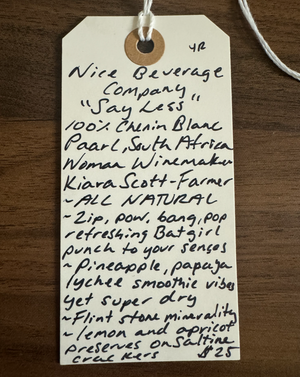 YR
Nice Beverage
Company
"Say Less"
100% Chenin Blanc
Paarl, South Africa
Woman Winemaker
Kiara Scott-Farmer
~ALL NATURAL
~Zip, pow, bang, pop
refreshing Batgirl
punch to your senses
~Pineapple, papaya
lychee smoothie vibes
yet super dry
~Flint stone minerality
~lemon and apricot
preserves on saltine
crackers $25